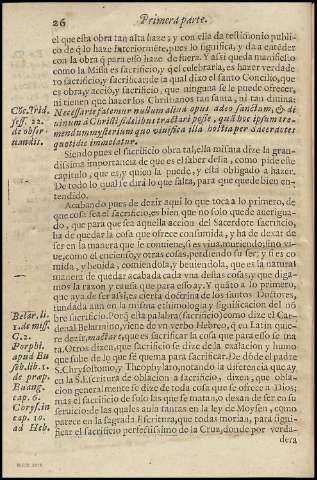 26 Primera parte.
el que esta obra tan alta haze; y con ella da testimonio publi-
co de q̃ lo haze interiormẽte, pues lo significa, y da a entẽder
con la obra q̃ para esso haze de fuera. Y assi queda manifiesto
como la Missa es sacrificio, y q̃ el celebrarla, es hazer verdade-
ro sacrificio, y sacrificãte la qual dize el santo Concilio, que
es obra, y accio, y sacrificio, que ninguna se le puede ofrecer,
ni tienen que hazer los Christianos tan santa, ni tan diuina:
Necessariè fatemur nullum aliud opus adeo sanctum, & di-
uinum à Christi fidelibus tractari posse, quàm hoc ipsum tre-
mendum mysterium quo viuifica illa hostia per Sacerdotes
quotidie immolatur.
Cõc. Trid.
sess. 22.
de obser
uandis.
Siendo pues el sacrificio obra tal, ella misma dize la gran-
dissima importancia de que es el saber della, como pide este
capitulo, que es, y quien la puede, y està obligado a hazer.
De todo lo qual se dirà lo que falta, para que quede bien en-
tendido.
Acabando pues de dezir aqui lo que toca a lo primero, de
que cosa sea el sacrificio, es bien que no solo quede aueriguado,
que para que sea aquella accion del Sacerdote sacrificio,
ha de quedar la cosa que ofrece consumida, y ha de dexar de
ser en la manera que le conuiene, si es viua, muriendo; sino vi-
ue, como el encienso, y otras cosas, perdiendo su ser; y si es co
mida, y beuida, comiendola, y beuiendola, que es la natural
manera de quedar acabada cada vna destas cosas, y que diga-
mos la razon y causa que para esso ay. Y quãto a lo primero,
que aya de ser assi, es cierta doctrina de los santos Doctores,
fundada aun en la misma ethimologia y significacion del nõ
bre sacrificio. Porq̃ esta palabra (sacrificio) como dize el Car-
denal Belarmino, viene de vn verbo Hebreo, q̃ en Latin quie-
re dezir, mactare, que es sacrificar la cosa que para esso se ma
ta. Otros dizen, que sacrificio se dize de la exalacion y humo
que sube de lo que se quema para sacrificar. De dõde el padre
S. Chrysostomo, y Theophylato, notando la diferencia que ay
en la S. Escritura de oblacion a sacrificio, dizen, que obla-
cion generalmente se dize de toda cosa que se ofrece a Dios;
mas el sacrificio de solo las que se matan, o dexan de ser en su
seruicio: de las quales auia tantas en la ley de Moysen, como
parece en la sagrada Escritura, que todas morian, para signi-
ficar el sacrificio perfectissimo de la Cruz, donde por verda-
dera
Belar. li.
1. de miss.
C. 2.
Porphi.
apud Eu
seb. lib. 1.
de præp.
Euang.
cap. 6.
Chrys. in
cap. 10.
ad Heb.